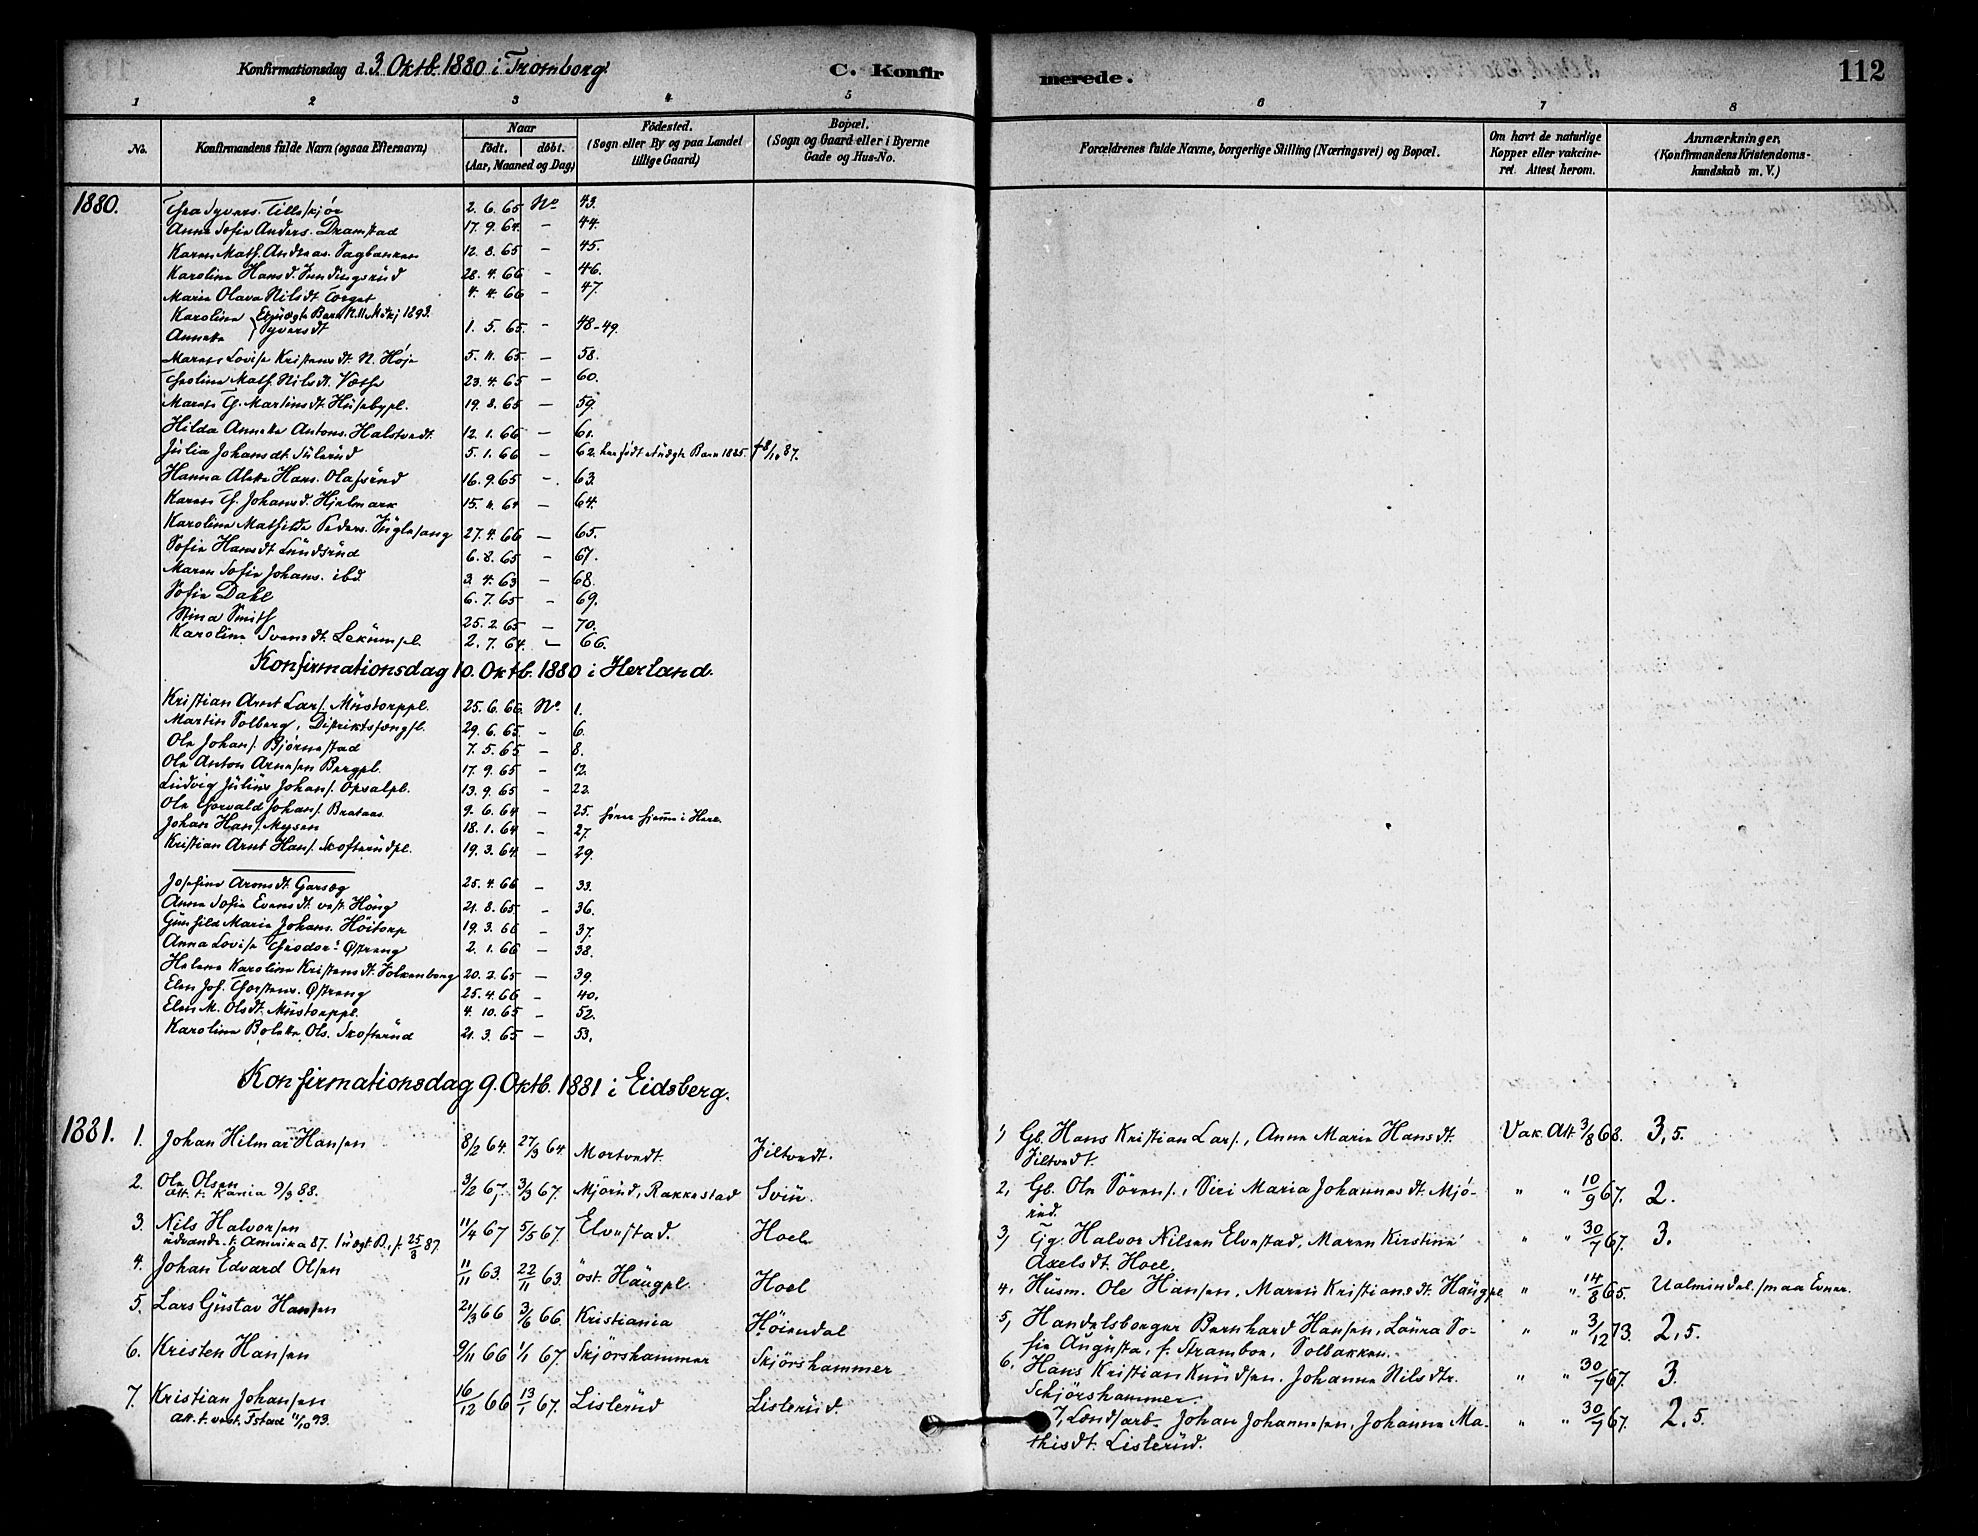 Konfirmationsdag d. 3. Oktb. 1880 i Tromborg.
C. Konfir
merede.
112
1 2 3 4 5 6 7 8
No.
Konfirmandens fulde Navn (ogsaa Efternavn)
Naar
födt. döbt.
(Aar, Maaned og Dag)
Födested.
(Sogn eller By og paa Landet
tillige Gaard)
Bopæl.
(Sogn og Gaard eller i Byerne
Gade og Hus-No.
Forældrenes fulde Navne, borgerlige Stilling (Næringsvei) og Bopæl.
Om havt de naturlige
Kopper eller vakcine-
ret. Attest herom.
Anmærkninger,
(Konfirmandens Kristendoms-
kundskab m. V.)
1880.
Thea Syvers. Tillskjør 2. 6. 65 No 43.
Anne Sofie Anders. Dramstad 17. 9. 64 – 44.
Karen Math. Andreas. Sagbanken 12. 8. 65 – 45.
Karoline Hansd. 28. 4. 66 – 46.
Marie Olava Nilsdt. Torget 4. 4. 66 – 47.
Karoline Uægte Barn N. 11 1893.
Annette } Syversdt 1. 5. 65. – 48-49.
Maren Lovise Kristensdt. N. Høje 5. 11. 65 – 58.
Theoline Math. Nilsdt. 23. 4. 65 – 60.
Maren G. Martinsdt. Husebypl. 19. 8. 65 – 59.
Hilda Annette Antons. Halstvedt. 12. 1. 66 – 61.
Julia Johansdt. Sulerud 5. 1. 66 – 62. har født uægte Barn 1885. † 8/10 87.
Hanna Alette Hans. Olafsrud 16. 9. 65 –. 63.
Karen Johansd. Hjelmark 15. 11. 64 – 64.
Karoline Mathilde Peders. Fuglesang 27. 4. 66 – 65.
Sofie Hansdt Lundsrud 6. 8. 65 – 67.
Maren Sofie Johans. ibd. 3. 4. 63 – 68.
Sofie Dahl 6. 7. 65 – 69.
Stina Smith 25. 2. 65 – 70.
Karoline Svensdt. Lekumpl. 2. 7. 64. – 66.
Konfirmationsdag 10. Oktb. 1880 i Herland.
Kristian Arnt Lars. Mustorppl. 25. 6. 66. No. 1.
Martin Solberg, Distriktsfængsl. 29. 6. 65. – 6.
Ole Johans. Bjørnestad 7. 5. 65 – 8.
Ole Anton Arnesen Bergpl. 17. 9. 65 – 12.
Ludvig Julius Johans. Opsalpl. 13. 9. 65 – 22.
Ole Thorvald Johans. Brataas 9. 6. 64 – 25. hører hjemme i Herl.
Johan Hans. Mysen 18. 1. 64 – 27.
Kristian Arnt Hans. Skofterudpl. 19. 3. 64 – 29.
Josefine Aronsdt. Garseg 25. 4. 66 – 33.
Anne Sofie Evensdt. vest. Haug 21. 8. 65 – 36.
Gunhild Marie Johans. Høitorp 19. 3. 66 – 37.
Anna Lovise Theodors. Østreng 2. 1. 66 – 38.
Helene Karoline Kristensdt. Folkenborg 20. 2. 65 – 39.
Elen Jos. Torstens. Østreng 25. 4. 66 – 40.
Elen M. Olsdt. Mustorppl. 4. 10. 65 – 52.
Karoline Bolette Ols. Skofterud 21. 3. 65 – 53.
Konfirmationsdag 9. Oktb. 1881 i Eidsberg.
1881. 1. Johan Hilmar Hansen 8/2 64. 27/3 64. Mortvedt. Filtvedt. 1, Gb. Hans Kristian Lars., Anne Marie Hansdt. Vak. Att. 3/8 68. 3,5.
Filtvedt.
2. Ole Olsen 3/2 67, 3/3 67. Mjörud, Rakkestad Sviu. 2, Gb. Ole Sörens., Siri Maria Johannesdt. Mjö- " " 10/9 67. 2.
att. t. Rania 9/3 88. rud.
3. Nils Halvorsen 11/4 67 5/5 67. Elvestad. Hoel 3, Gg. Halvor Nilsen Elvestad, Maren Kirstine " " 30/7 67. 3.
udvandr. t. Amerika 87. 1 uægt B. f. 25/8 87. Axelsdt. Hoel.
4. Johan Edvard Olsen 11/11 63. 22/11 63. öst. Haugpl. Hoel 4, Husm. Ole Hansen, Maren Kristiansdt. Haugpl " " 14/8 65. Ualmindel. smaa Evner.
5. Lars Gustav Hansen 21/3 66 3/6 66. Kristiania Höiendal 5, Handelsborger Bernhard Hansen, Laura So- " " 3/12 73. 2,5.
fie Augusta, f. Stramboe, Solbakken.
6. Kristen Hansen 9/11 66 1/1 67. Skjörshammer Skjörshammer 6. Hans Kristian Knudsen. Johanne Nilsdtr. " " 30/7 67. 3.
Schjörshammer.
7. Kristian Johansen 16/12 66 13/1 67. Listerud Listerud. 7, Landsarb. Johan Johannesen, Johanne Ma- " " 30/7 67. 2,5.
att. t. vest. Fstad 11/10 93. thisdt. Listerud.